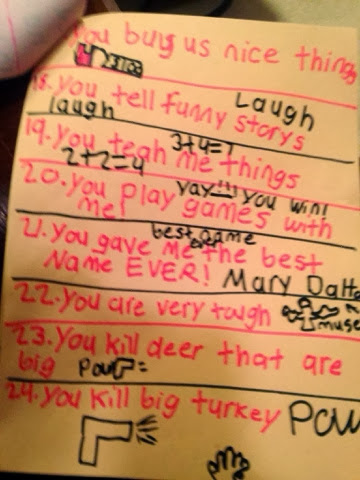 You buy us nice things
18. you tell funny storys
Laugh
laugh
19. you teah me things
3+4=7
2+2=4
20. you play games with me!
yay!!! you win!
21. You gave me the best Name EVER!
best game ever
Mary Dalt
22. you are very tough
muse
23. You kill deer that are big
Pow
24. you kill big turkey
Pow